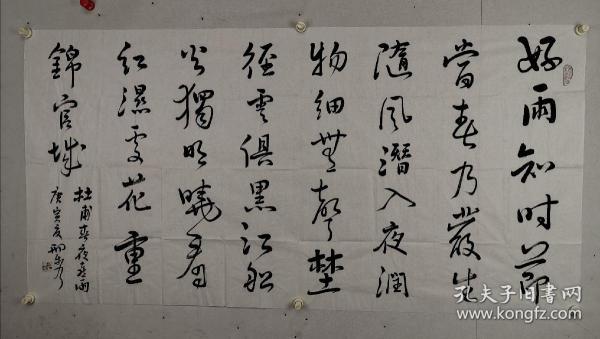 好雨知时节
當春乃發生
隨風潛入夜潤
物细無聲埜
徑雲俱黑江船
火獨明曉看
红濕處花重
錦官城
杜甫春夜喜雨
庚寅夏
孔夫子旧书网
www.kongfz.com